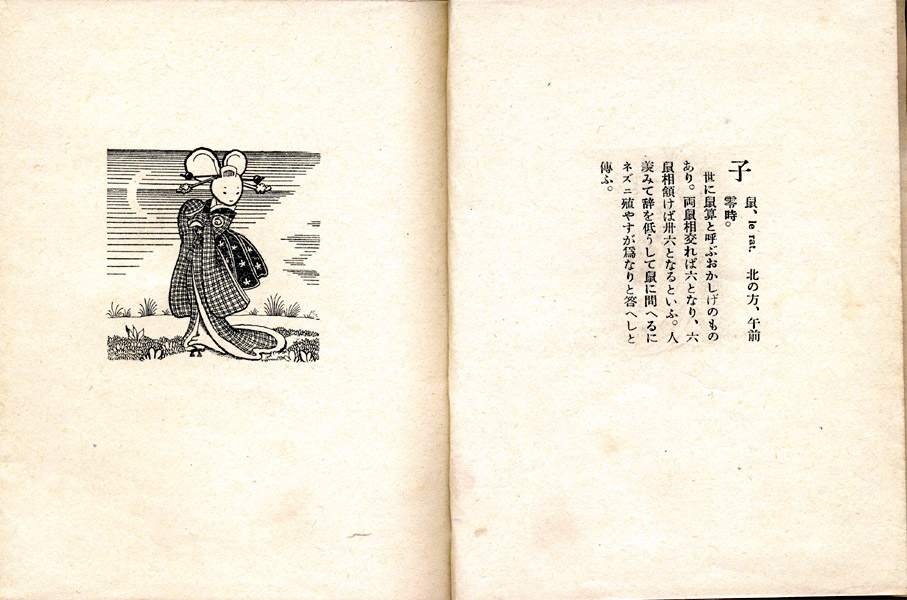 子 鼠、le rat. 北の方、午前
零時。
世に鼠算と呼ぶおかしげのもの
あり。両鼠相交れば六となり、六
鼠相頷けば卅六となるといふ。人
羨みて辞を低うして鼠に問へるに
ネズニ殖やすが為なりと答へしと
傳ふ。